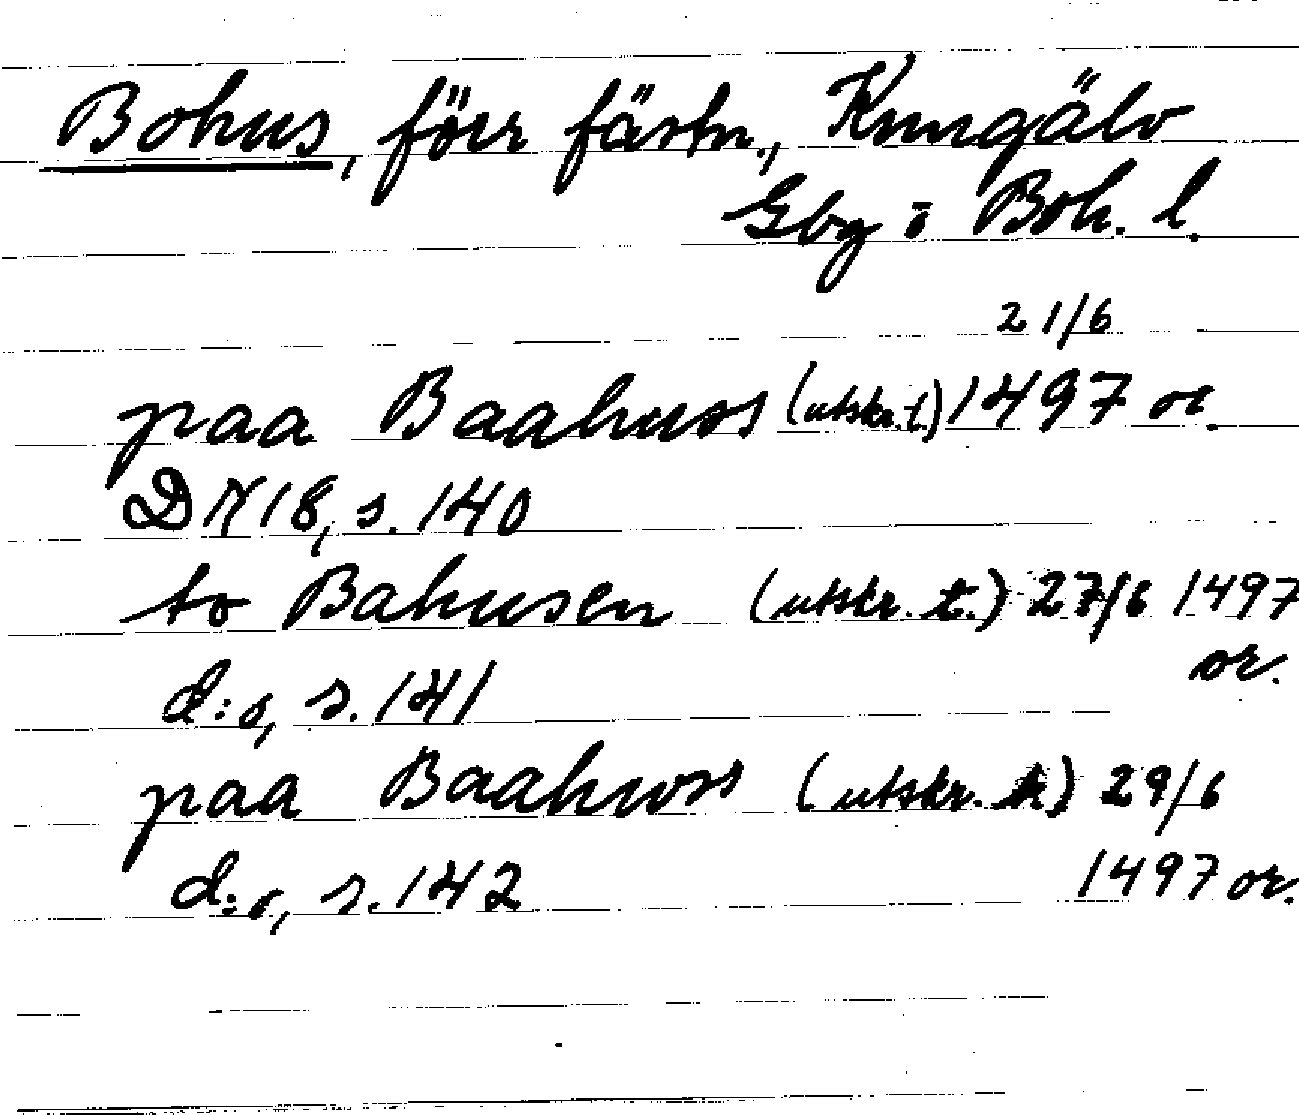 Bohus, förr fästn., Kungälv
Gbg o Boh. l.
21/6
paa Baahuss (utskr. t.) 1497 or.
DN 18, s. 140
to Bahusen (utskr. t.) 27/6 1497
or.
d:o, s. 141
paa Baahuss (utskr.) 29/6
d:o, s. 142 1497 or.